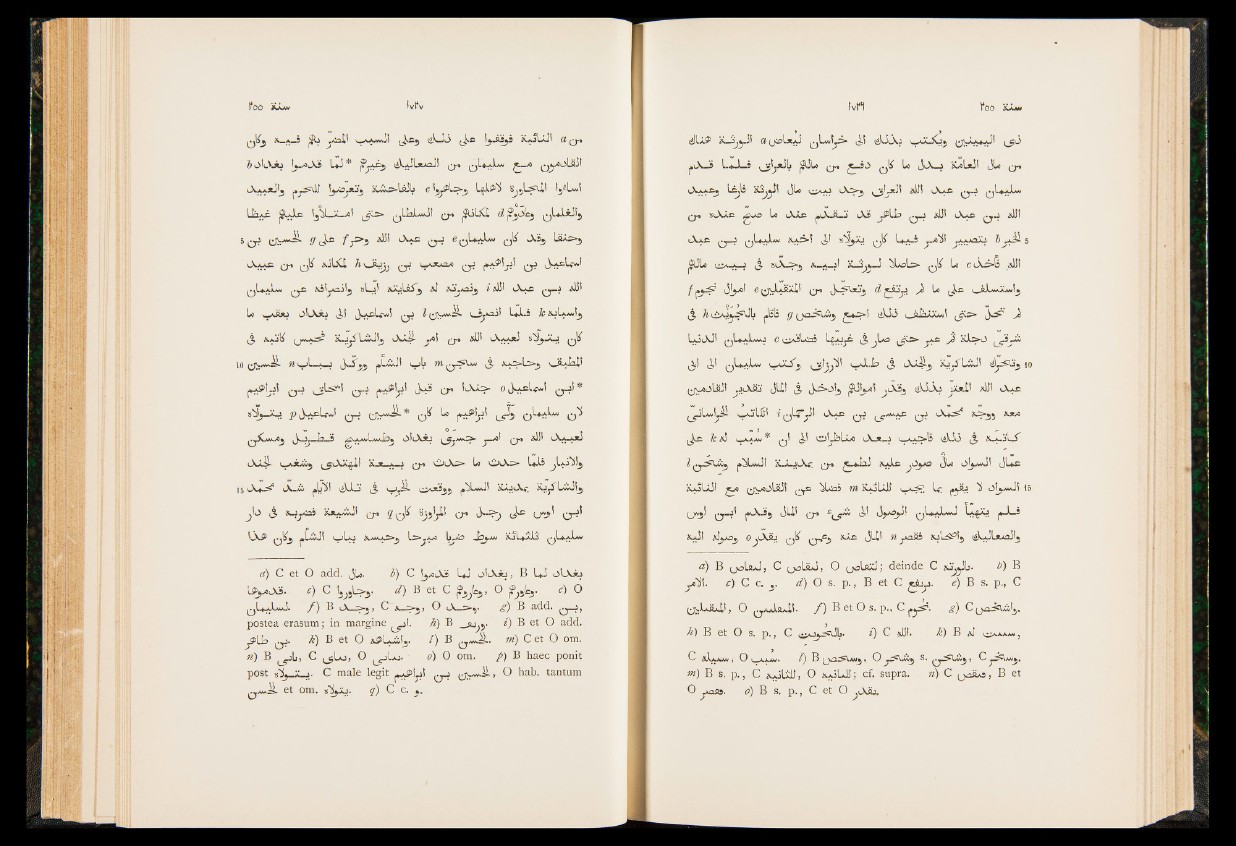 سنة ٢٥٥ ١٧٣٦
ذى اليمينين ويُكتب بذلك الى خراسان ليُعاض a الورثة هناك
من مال العامّة بدل ما كان دفع من مالهم بالعراق فلما قدم
سليمان بن عبد الله العراق وجد بيت مال الورثة فارغا وعبيد
الله بن عبد الله بن طاهر قد تقدّم عند ما صحّ عنده من
5 الخبر b بتصيير الامر فيما كان يتولاه الى اخيه سليمان بن عبد
الله فأخذ c ما كان حاصلا لورثة ابيه وجدّه فى بيت مالهم
واستسلف على ما لم يرتفع d وتعجّل من المتقبّلين e اموال نجوم f
لم تحلّ حتى استنظف ذلك اجمع وشخص g فأقام بالجُوَيْث h فى
شرقىّ دجلة ثم عبر حتى صار فى غربيها فضاقت c بسليمان الدنيا
10 وتحرّك الشاكريّة والجند فى طلب الارزاق وكتب سليمان الى ابى
عبد الله المعتزّ بذلك وقدّر اموالهم وادخل فى المال تقدير القادمين
معه ووجّه محمد بن عيسى بن عبد الرحمن i الكاتب الخراسانى
كاتبه فى ذلك فاجيب بعد مناظرات الى ان *سُبّب له k على
عمّال السواد مال صودر عليه لطمع من بمدينة السلام وشحن l
15 السواد لا يقوم بما يجب للنائبة m فضلا عن القادمين مع النائبة
فلم يتهيّأ لسليمان الوصول الى شىء من المال وقدم ابن اوس
والصعاليك واصحابه فقصر n المال عنه وعن كان يقدّر o وصوله اليه
a) B لعاض, C لعاص, O لتعاض; deinde C بالورثة. b) B
الامر. c) C c. و. d) O s. p., B et C يقع. e) B s. p., C
المقبلين, O المتقبلين. f) B et O s. p., C نجوم. g) C واشخص.
h) B et O s. p., C بالجويث. i) C الله. k) B سسب له,
C سبيله, O سُبب. l) B وسحص, O وشحر s. وشحن, C وسحر.
m) B s. p., C للثانية, O للنائبة; cf. supra. n) C فيقص, B et
O فقصر. o) B s. p., C et O بقدر.
سنة ٢٥٥ ١٧٣٧
من a النائبة فوقفوا على ذلك وعلى السبب المضرّ بهم فيه وكان
القادمون مع سليمان من الصعاليك وغيرهم *لمّا قدموا بغداد b
اساءوا المجاورة لاهلها وجاهروا c بالفاحشة وتعرّضوا للحرم والعبيد
والغلمان وعادوهم d لمكانهم من السلطان حتى امتلأوا عليهم غيظا
5 وحنقا وقد كان سليمان e بن عبد الله وحر f على g الحسين بن
اسماعيل بن ابراهيم بن مصعب بن زريق h لمكانه كان من عبيد
الله بن عبد الله i ونصرته له وكفايته ايّاه وانصرافه عن سليمان
واسبابه k فلما انصرف الحسين l بن اسماعيل الى بغداد بعقب ما
كان يتولاه لعبيد الله من امر الجند والشاكريّة حبس كاتبه فى
10 المطبق وحاجبه فى سجن m باب الشأم ووكّل بباب n الحسين
*ابن اسماعيل o جندا من قبل ابراهيم بن اسحاق بن ابراهيم
لانّ سليمان ولّى ابراهيم ما كان *الحسين بن اسماعيل p يتولاه
لعبيد الله من امر جسرَىْ بغداد وطساسيج قطربّل ومسكن
والانبار فلما حدث ما حدث من بيعة المهتدى وشغب الجند
15 والشاكريّة بمدينة السلام ووقعت الحرب فى تلك الايّام شدّ محمد
ابن اوس على رجل من المراوزة كان q من الشيعة فضربه فى دار
سليمان ثلثمائة سوط ضربا مبرحا وحبسه بباب الشأم وكان هذا
a) C et O add. مال. b) C لما قدموا بغداد, B بغداد لما
قدموها. c) C وجاوروا. d) B et C وغزوهم, O وعزوهم. e) O
لسليمان. f) B وجد, C وحد, O وحد. g) B add. بن,
postea erasum; in margine ابى. h) B وزيق. i) B et O add.
بن طاهر. k) B et O واشياعه. l) B الحسن. m) C et O om.
n) B باى, C بماى, O بماى. o) O om. p) B haec ponit
post يتولاه. C male legit الحسين بن ابراهيم, O hab. tantum
الحسن et om. يتولاه. q) C c. و.